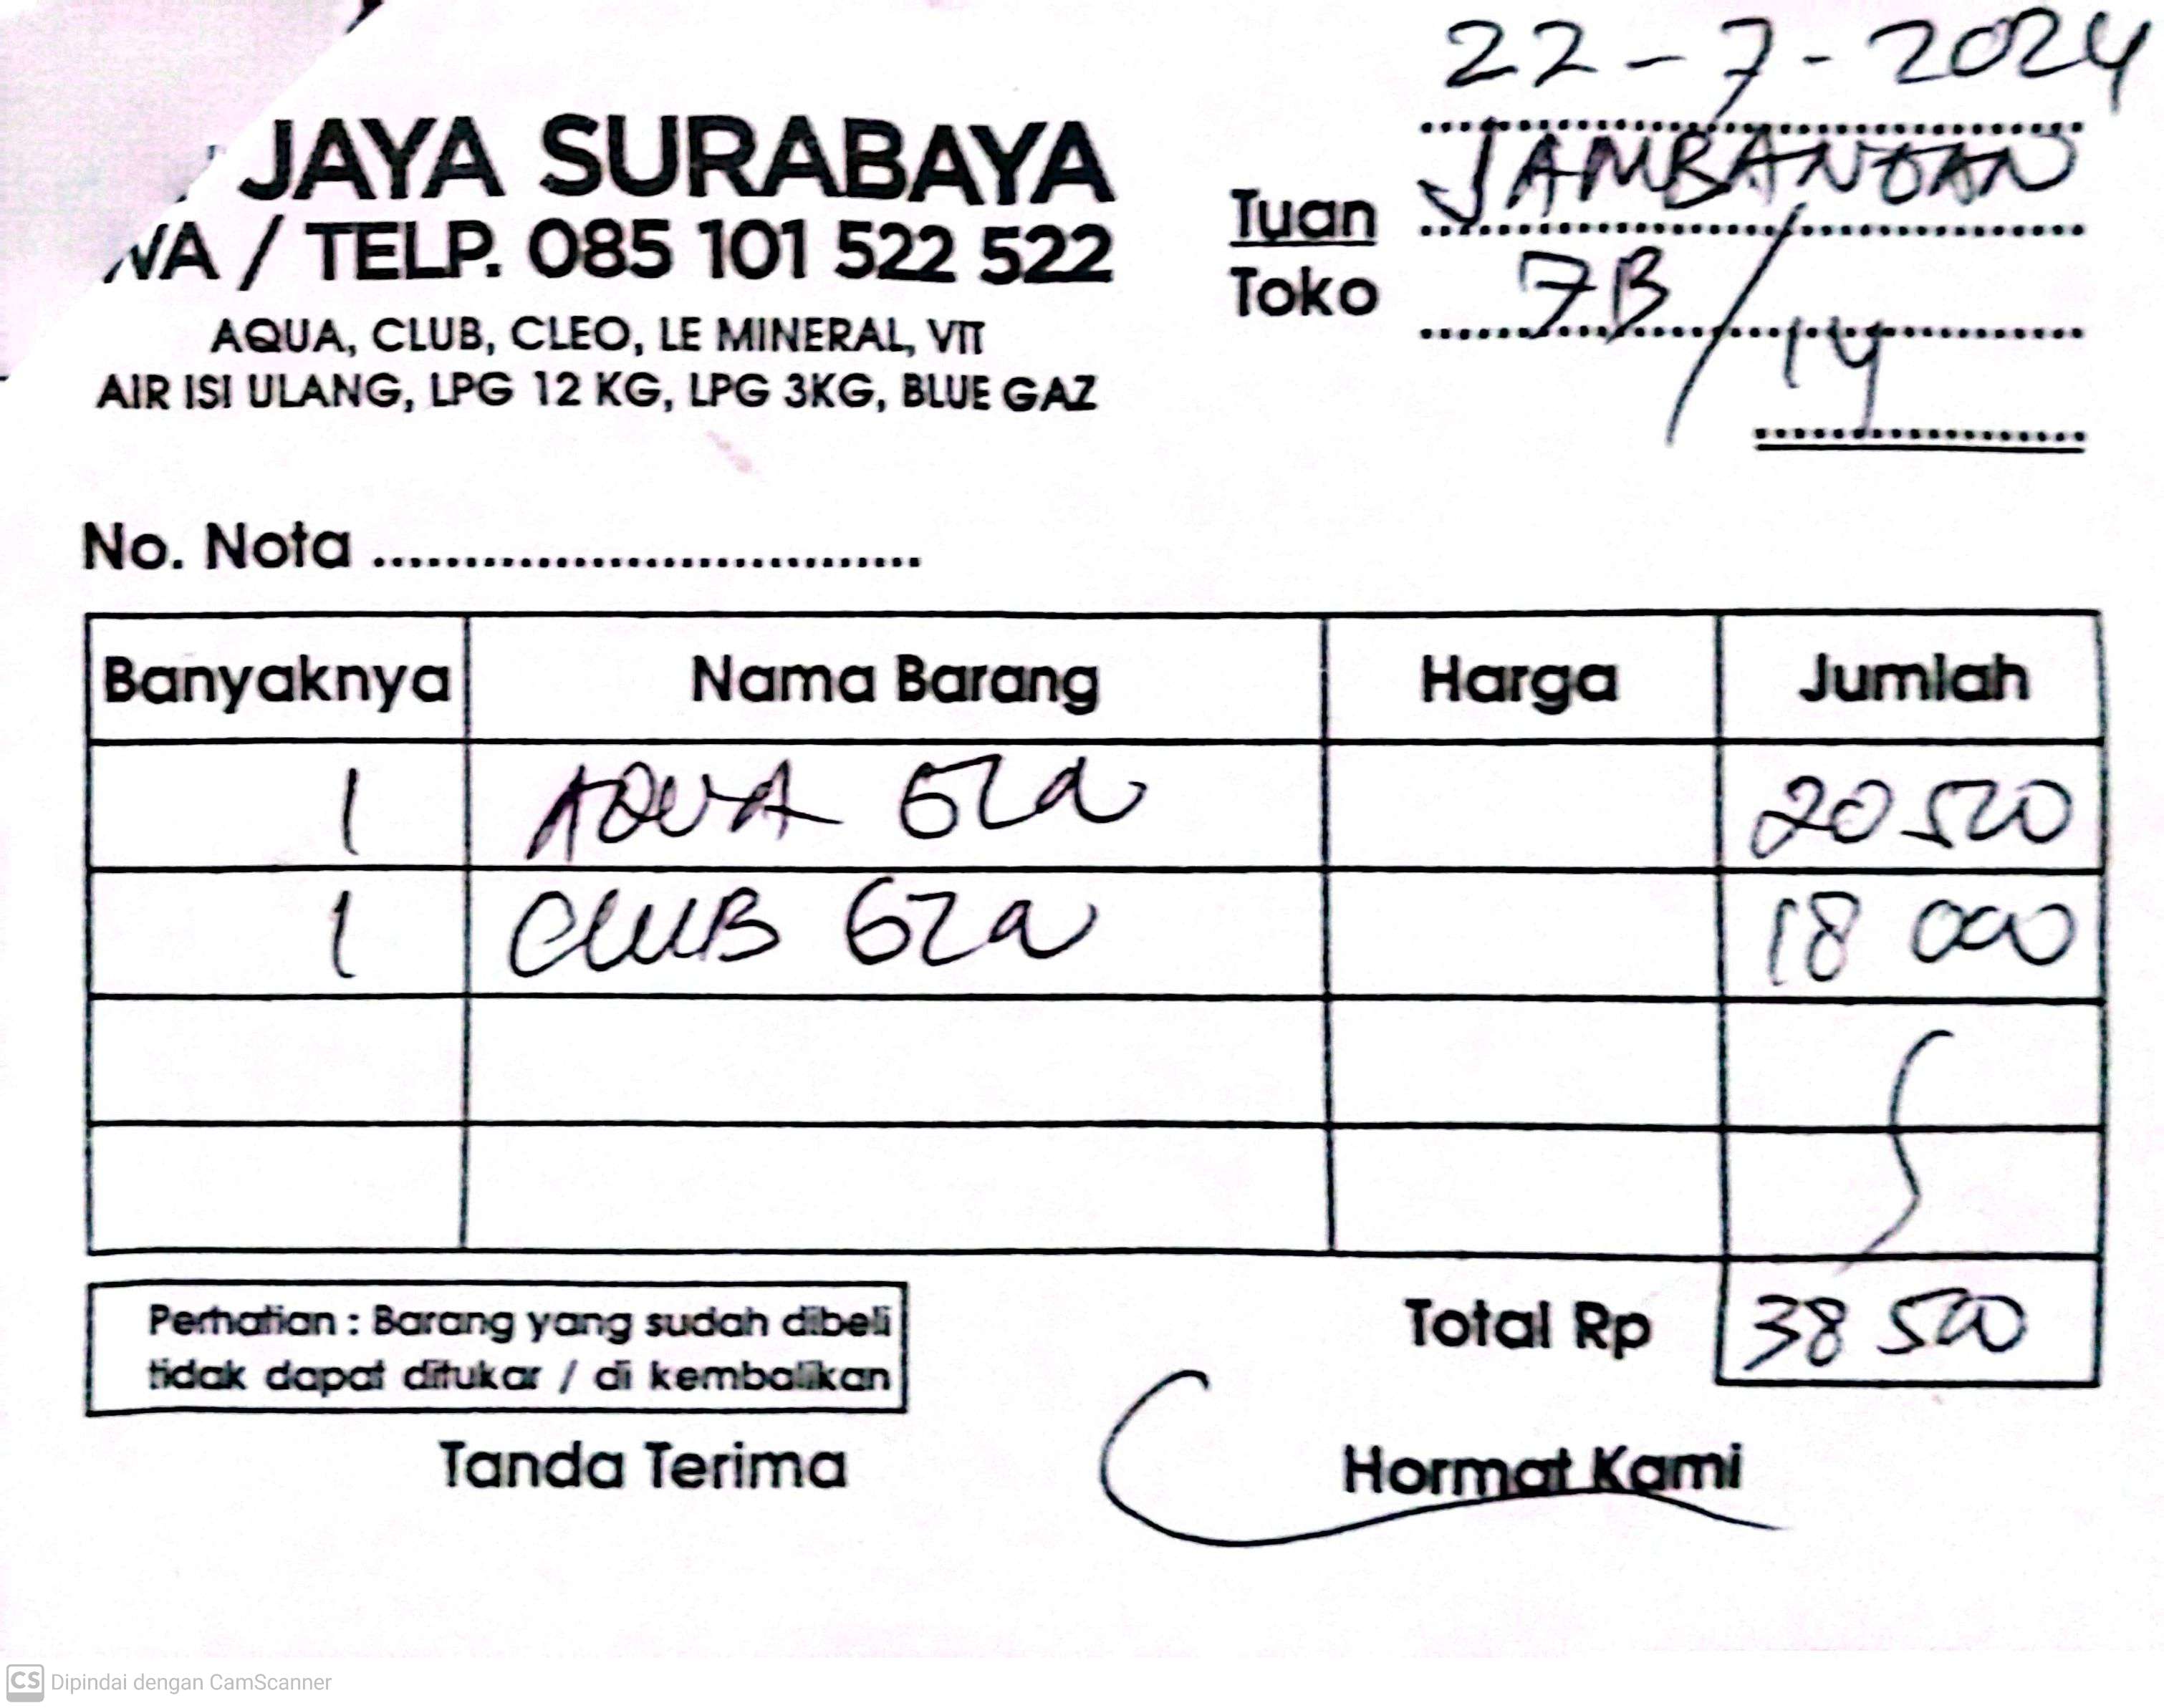 22-7-2024
JAYA SURABAYA
WA / TELP. 085 101 522 522
AQUA, CLUB, CLEO, LE MINERAL, VIT
AIR ISI ULANG, LPG 12 KG, LPG 3KG, BLUE GAZ
Tuan JAMBANGAN
Toko 7B / 14
No. Nota ..............................
Banyaknya Nama Barang Harga Jumlah
1 AQUA GLN 20 500
1 CLUB GLN 18 000
Total Rp 38 500
Perhatian : Barang yang sudah dibeli
tidak dapat ditukar / di kembalikan
Tanda Terima Hormat Kami
CS Dipindai dengan CamScanner